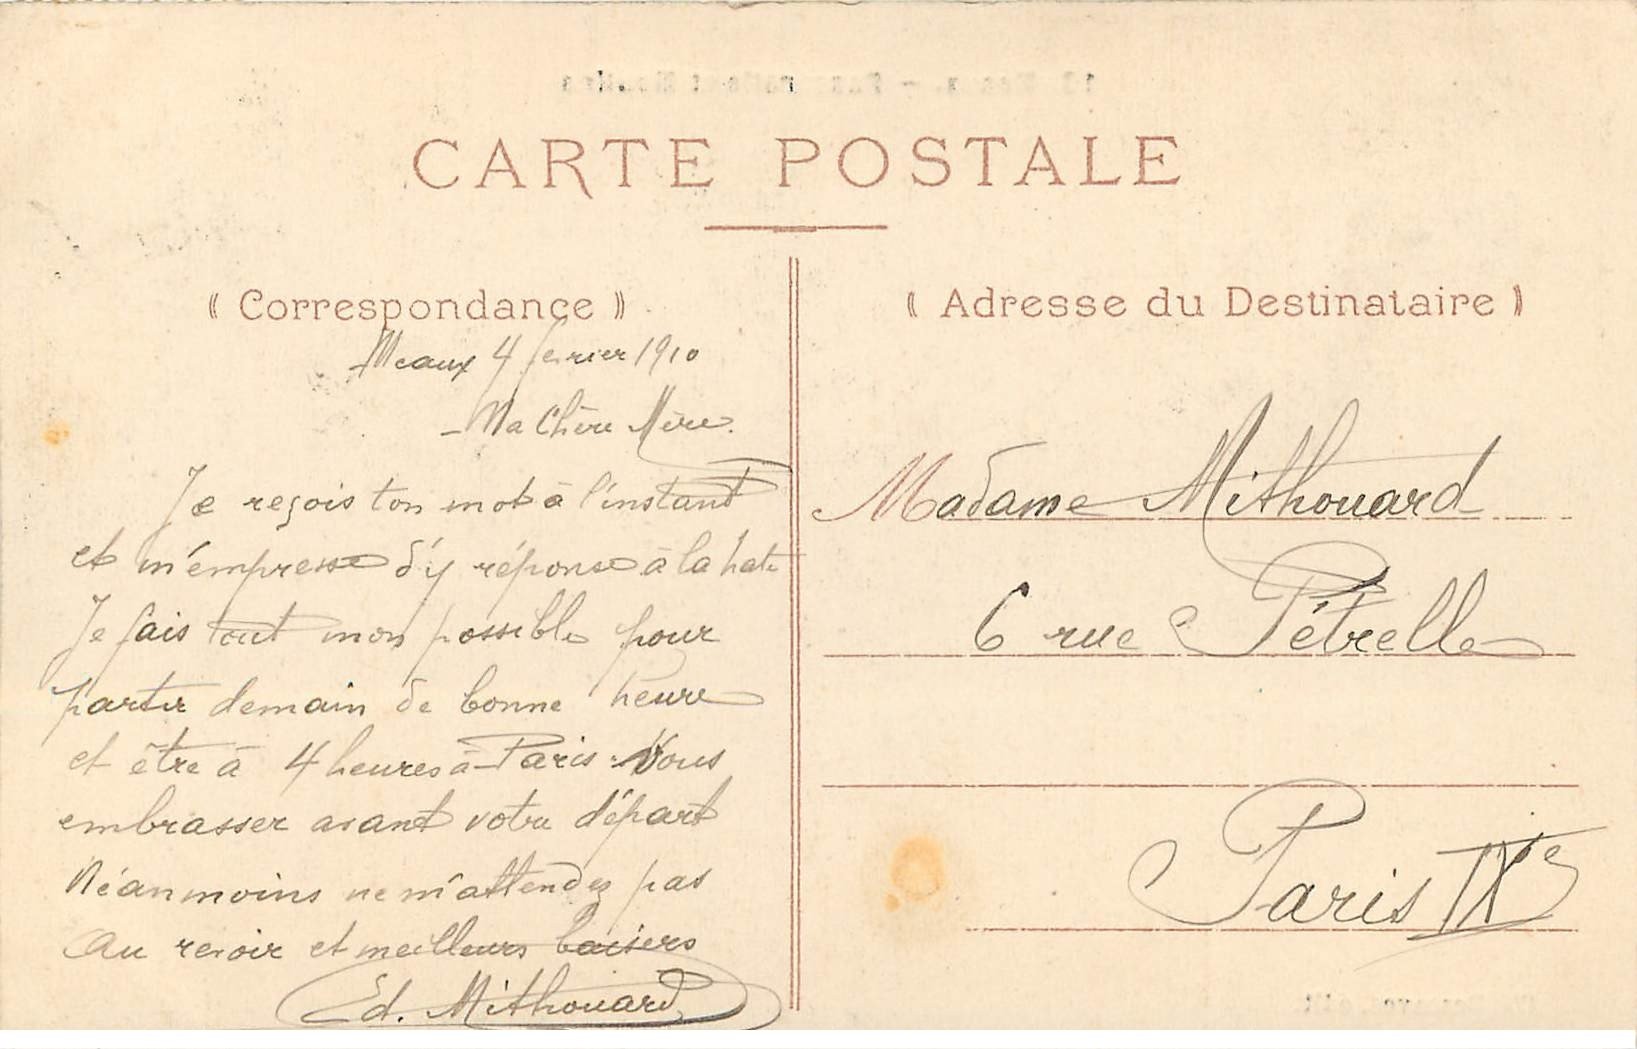 CARTE POSTALE
« Correspondance »
Meaux 4 fevrier 1910
Ma Chère Mère.
Je reçois ton mot à l'instant
et m'empresse d'y réponse à la hate
Je fais tout mon possible pour
partir demain de bonne heure
et être à 4 heures à Paris. Vous
embrasser avant votre départ
Néanmoins ne m'attendez pas
Au revoir et meilleurs baisers
Ed. Mithouard
« Adresse du Destinataire »
Madame Mithouard
6 rue Pétrelle
Paris IXe